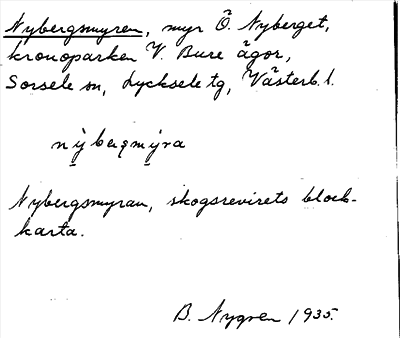 Nybergsmyren, myr Ö. Nyberget,
kronoparken V. Bure ägor,
Sorsele sn, Lycksele tg, Västerb. l.
nỳbeṛgmýra
Nybergsmyran, skogsrevirets block-
karta.
B. Nygren 1935.